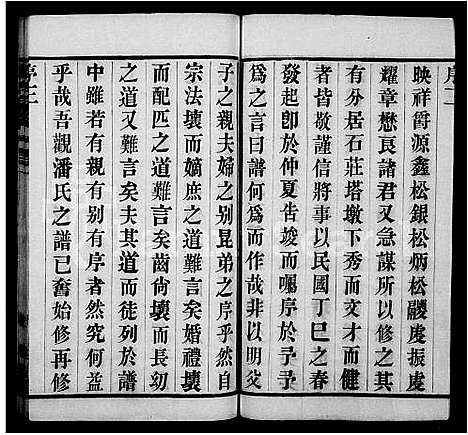 序二
映祥爵源鑫松銀松炳松聽虔振虔
耀章懋良諸君又急謀所以修之其
有分居石莊塔墩下秀而文才而健
者皆敬謹信將事以民國丁巳之春
發起卽於仲夏告竣而囑序於予予
爲之言曰譜何爲而作哉非以明父
子之親夫婦之別昆弟之序乎然自
宗法壞而嫡庶之道難言矣婚禮壞
而配匹之道難言矣齒尙壞而長幼
之道又難言矣夫其道而徒列於譜
中雖若有親有別有序者然究何益
乎哉吾觀潘氏之譜已奮始修再修
序三